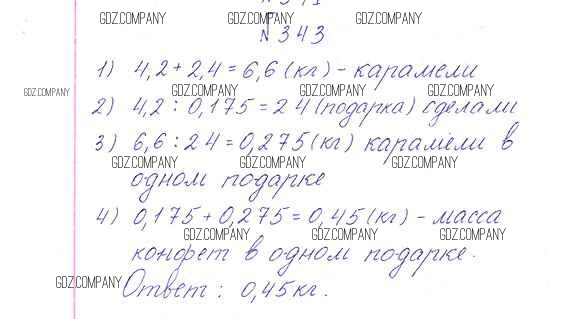 GDZ.COMPANY GDZ.COMPANY GDZ.COMPANY
№ 343
1) 4,2 + 2,4 = 6,6 (кг) - карамели
GDZ.COMPANY GDZ.COMPANY GDZ.COMPANY GDZ.COMPANY
2) 4,2 : 0,175 = 24 (подарка) сделали
3) 6,6 : 24 = 0,275 (кг) карамели в
GDZ.COMPANY GDZ.COMPANY GDZ.COMPANY
одном подарке
4) 0,175 + 0,275 = 0,45 (кг) - масса
GDZ.COMPANY GDZ.COMPANY GDZ.COMPANY
конфет в одном подарке.
GDZ.COMPANY
Ответ : 0,45 кг.